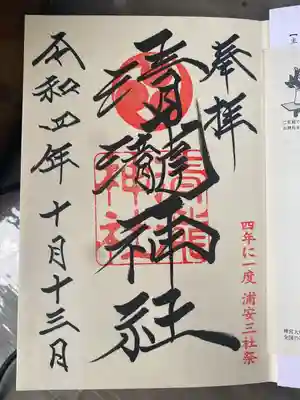 奉拝
清瀧神社
清瀧
神社
令和四年十月十三日
四年に一度 浦安三社祭